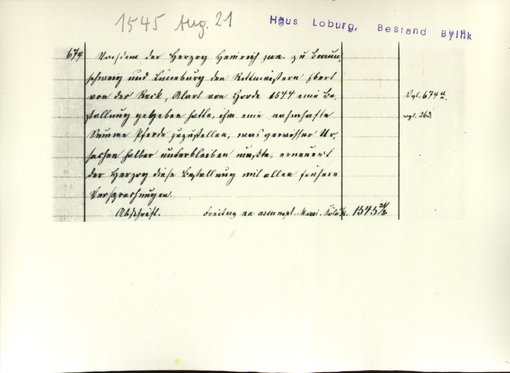 1545 Aug. 21
Haus Loburg, Bestand Bylik
674
Nachdem der Herzog Heinrich jun. zu Braun-
schweig und Lüneburg den Rittmeistern Evert
von der Reck, Alart von Horde 1544 eine Be-
stallung gegeben hatte, ihm eine namhafte
Summe Pferde zuzustellen, was gewisser Ur-
sachen halber unterbleiben mußte, erneuert
der Herzog diese Bestallung mit allen frühern
Versprechungen.
Vgl. 674a
vgl. 262
Abschrift. Freitag na assumpt. Marie 1545 21/8